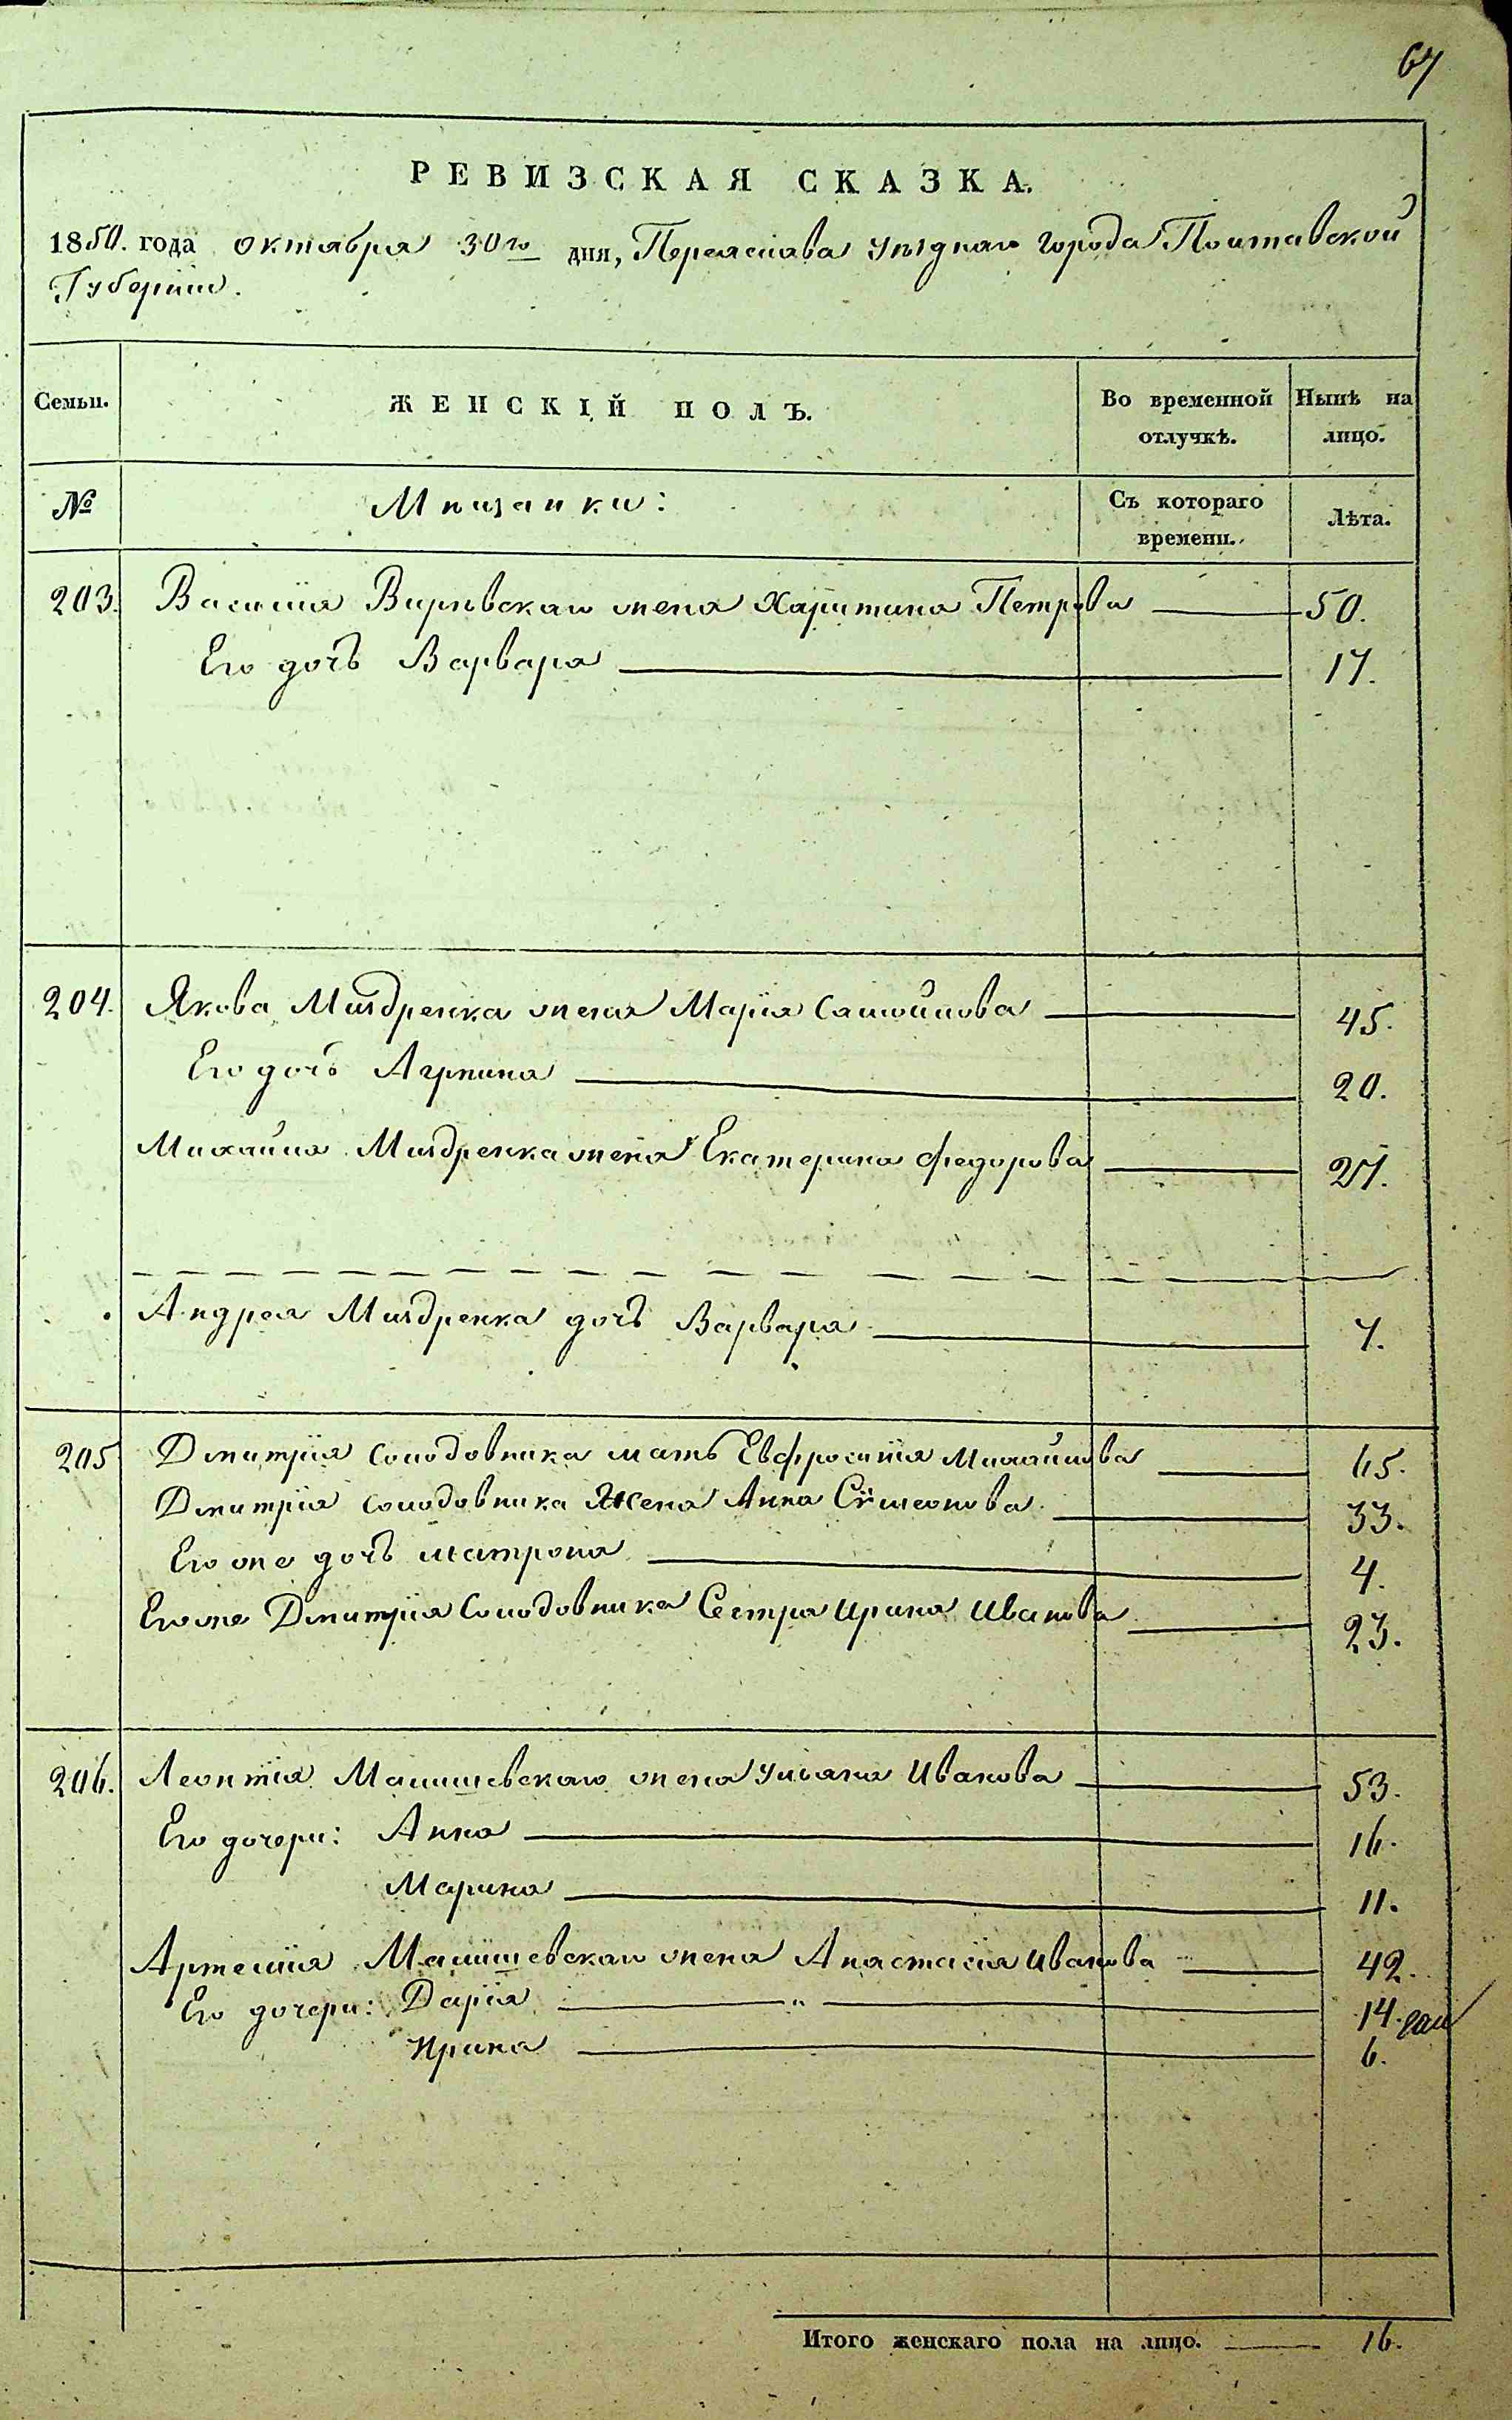 67
РЕВИЗСКАЯ СКАЗКА.
1850. года октября 30го дня, Переяслава уѣзднаго города Полтавской
Губерніи.
Семьи.
ЖЕНСКІЙ ПОЛЪ.
Во временной отлучкѣ.
Нынѣ на лицо.
№
Мѣщанки:
Съ котораго времени.
Лѣта.
203. Василія жена Харитина Петрова 50.
Его дочь Варвара 17.
204. Якова жена Марія Самойлова 45.
Его дочь Агрпина 20.
Михайла жена Екатерина Федорова 27.
Андрея дочь Варвара 7.
205 Дмитрія Солодовника мать Евфросинія Михайлова 65.
Дмитрія Солодовника Жена Анна Сѵмеонова 33.
Его же дочь Матрона 4.
Его же Дмитрія Солодовника Сестра Ирина Иванова 23.
206. Леонтія Малишевскаго жена Ульяна Иванова 53.
Его дочери: Анна 16.
Марина 11.
Артемія Малишевскаго жена Анастасія Иванова 42.
Его дочери: Дарія " 14.
Ирина 6.
Итого женскаго пола на лицо. 16.